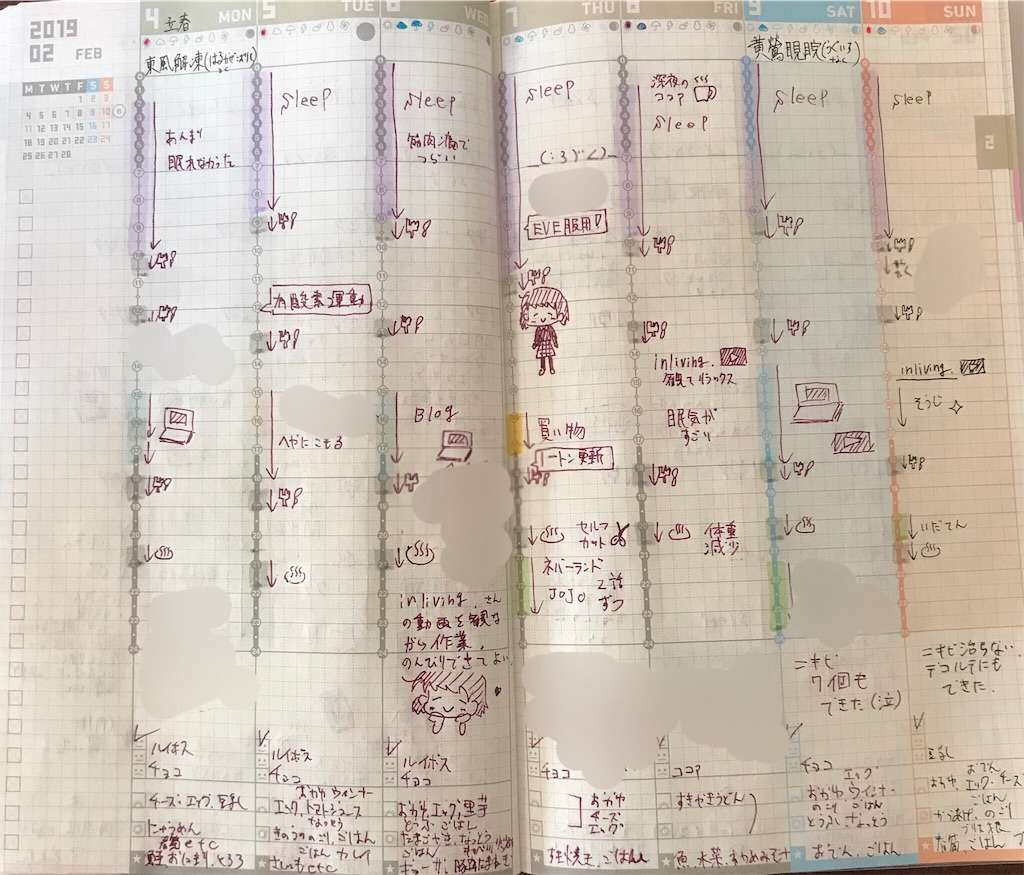 2019
02 FEB
M T W T F S S
1 2 3
4 5 6 7 8 9 10
11 12 13 14 15 16 17
18 19 20 21 22 23 24
25 26 27 28
4 立春 MON
東風解凍(はるかぜ
あんまり
眠れなかった
ルイボス
チョコ
チーズ、エッグ、豆乳
にゅうめん
etc
おにまり、とろろ
5 TUE
sleep
有酸素運動
へやにこもる
ルイボス
チョコ
おかゆ ウィンナー
エッグ、トマトジュース
なっとう
きのうののこり、ごはん
ごはん カレイ
etc
6 WED
sleep
筋肉痛で
つらい
Blog
inliving.さん
の動画を観な
がら作業。
のんびりできてよい。
ルイボス
チョコ
おかゆ、エッグ、里芋
とうふ、ごはん
たまごやき、なっとう
ごはん
7 THU
sleep
EVE服用
買い物
ノートン更新
セルフ
カット
ネバーランド
JoJo 2話
ずつ
チョコ
おかゆ
チーズ
エッグ
生姜焼き、ごはん
8 FRI
深夜の
ココア
sleep
inliving.
観てリラックス
眠気が
すごい
体重
減少
ココア
すきやきうどん
魚、水菜、わかめみそ汁
9 SAT
黄鶯睍睆(うぐいす
なく
sleep
ニキビ
7個も
できた(泣)
チョコ
エッグ
おかゆ、ウィンナー
のこり ごはん
とうふ なっとう
おでん、ごはん
10 SUN
sleep
inliving.
そうじ
いだてん
ニキビ治らない。
デコルテにも
できた。
豆乳
おでん
エッグ、チーズ
ごはん
からあげ、のこり
ごはん
2